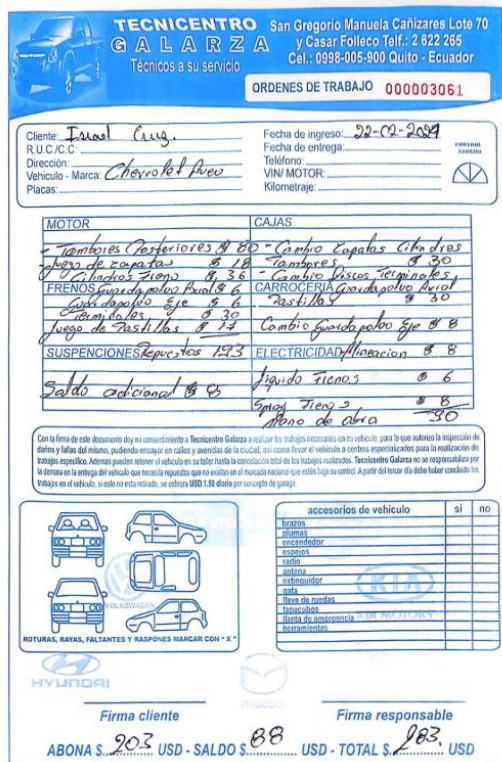 TECNICENTRO
GALARZA
Técnicos a su servicio
San Gregorio Manuela Cañizares Lote 70
y Casar Folleco Telf.: 2 622 265
Cel.: 0998-005-900 Quito - Ecuador
ORDENES DE TRABAJO 000003061
Cliente: Israel Cruz.
R.U.C./C.C:
Dirección:
Vehiculo - Marca: Chevrolet Aveo
Placas:
Fecha de ingreso: 22-02-2024
Fecha de entrega:
Teléfono:
VIN/ MOTOR:
Kilometraje:
MOTOR
- Tambores Posteriores $ 80
Juego de zapatas $ 18
- Cilindros Freno $ 36
FRENOS Guardapolvo Axial $ 6
Guardapolvo Eje $ 6
Terminales $ 30
Juego de Pastillas $ 17
SUSPENCIONES Repuestos 193
Saldo adicional $ 8
CAJAS
- Cambio Zapatas Cilindros
Tambores $ 30
- Cambio Discos Terminales,
CARROCERIA Guardapolvo Axial
Pastillas $ 30
Cambio Guardapolvo Eje $ 8
ELECTRICIDAD Alineacion $ 8
Liquido Frenos $ 6
Spray Frenos $ 8
Mano de obra 90
Con la firma de este documento doy mi consentimiento a Tecnicentro Galarza a realizar los trabajos necesarios en mi vehículo, para lo que autorizo la inspección de
daños y fallas del mismo, pudiendo ensayar en calles y avenidas de la ciudad, así como llevar el vehículo a centros especializados para la realización de
trabajos específico. Ademas pueden retener el vehículo en su taller hasta la cancelación total de los trabajos realizados. Tecnicentro Galarza no se responsabiliza por
la demora en la entrega del vehículo que necesita repuestos que no existan en el mercado nacional que estén bajo su control. A partir del tercer día debe haber concluido los
trabajos en el vehículo, si este no esta retirado, se cobrara USD 1,50 diario por concepto de garage.
VOLKSWAGEN
ROTURAS, RAYAS, FALTANTES Y RASPONES MARCAR CON "X"
accesorios de vehiculo si no
brazos
plumas
encendedor
espejos
radio
antena
extinguidor
gata
llave de ruedas
tapacubos
llanta de emergencia
herramientas
KIA
KIA MOTORS
HYUNDAI
mazda
Firma cliente
Firma responsable
ABONA $ 203 USD - SALDO $ 88 USD - TOTAL $ 283. USD